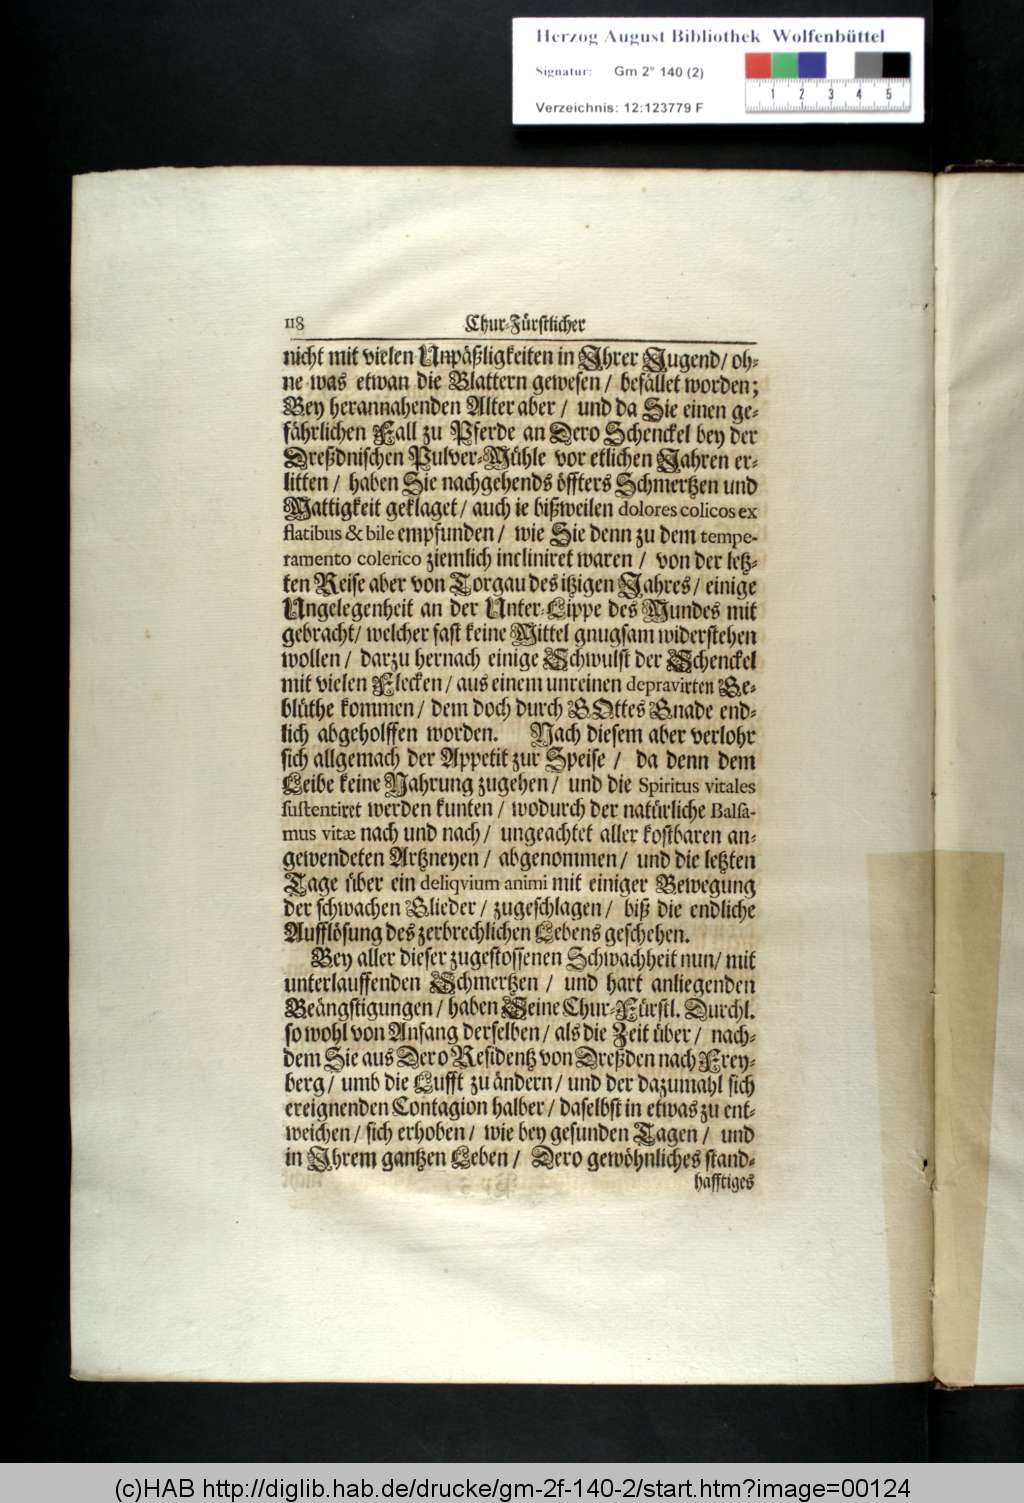 Herzog August Bibliothek Wolfenbüttel
Signatur: Gm 2° 140 (2)
1 2 3 4 5
Verzeichnis: 12:123779 F
118 Chur-Fürstlicher
nicht mit vielen Unpäßligkeiten in Ihrer Jugend/ oh-
ne was etwan die Blattern gewesen/ befället worden;
Bey herannahenden Alter aber/ und da Sie einen ge-
fährlichen Fall zu Pferde an Dero Schenckel bey der
Dreßdnischen Pulver-Mühle vor etlichen Jahren er-
litten/ haben Sie nachgehends öffters Schmertzen und
Mattigkeit geklaget/ auch ie bißweilen dolores colicos ex
flatibus & bile empfunden/ wie Sie denn zu dem tempe-
ramento colerico ziemlich incliniret waren/ von der letz-
ten Reise aber von Torgau des itzigen Jahres/ einige
Ungelegenheit an der Unter-Lippe des Mundes mit
gebracht/ welcher fast keine Mittel gnugsam widerstehen
wollen/ darzu hernach einige Schwulst der Schenckel
mit vielen Flecken/ aus einem unreinen depravirten Ge-
blüthe kommen/ dem doch durch GOttes Gnade end-
lich abgeholffen worden. Nach diesem aber verlohr
sich allgemach der Appetit zur Speise/ da denn dem
Leibe keine Nahrung zugehen/ und die Spiritus vitales
sustentiret werden kunten/ wodurch der natürliche Balsa-
mus vitæ nach und nach/ ungeachtet aller kostbaren an-
gewendeten Artzneyen/ abgenommen/ und die letzten
Tage über ein deliqvium animi mit einiger Bewegung
der schwachen Glieder/ zugeschlagen/ biß die endliche
Aufflösung des zerbrechlichen Lebens geschehen.
Bey aller dieser zugestossenen Schwachheit nun/ mit
unterlauffenden Schmertzen/ und hart anliegenden
Beängstigungen/ haben Seine Chur-Fürstl. Durchl.
so wohl von Anfang derselben/ als die Zeit über/ nach-
dem Sie aus Dero Residentz von Dreßden nach Frey-
berg/ umb die Lufft zu ändern/ und der dazumahl sich
ereignenden Contagion halber/ daselbst in etwas zu ent-
weichen/ sich erhoben/ wie bey gesunden Tagen/ und
in Ihrem gantzen Leben/ Dero gewöhnliches stand-
hafftiges
(c)HAB http://diglib.hab.de/drucke/gm-2f-140-2/start.htm?image=00124